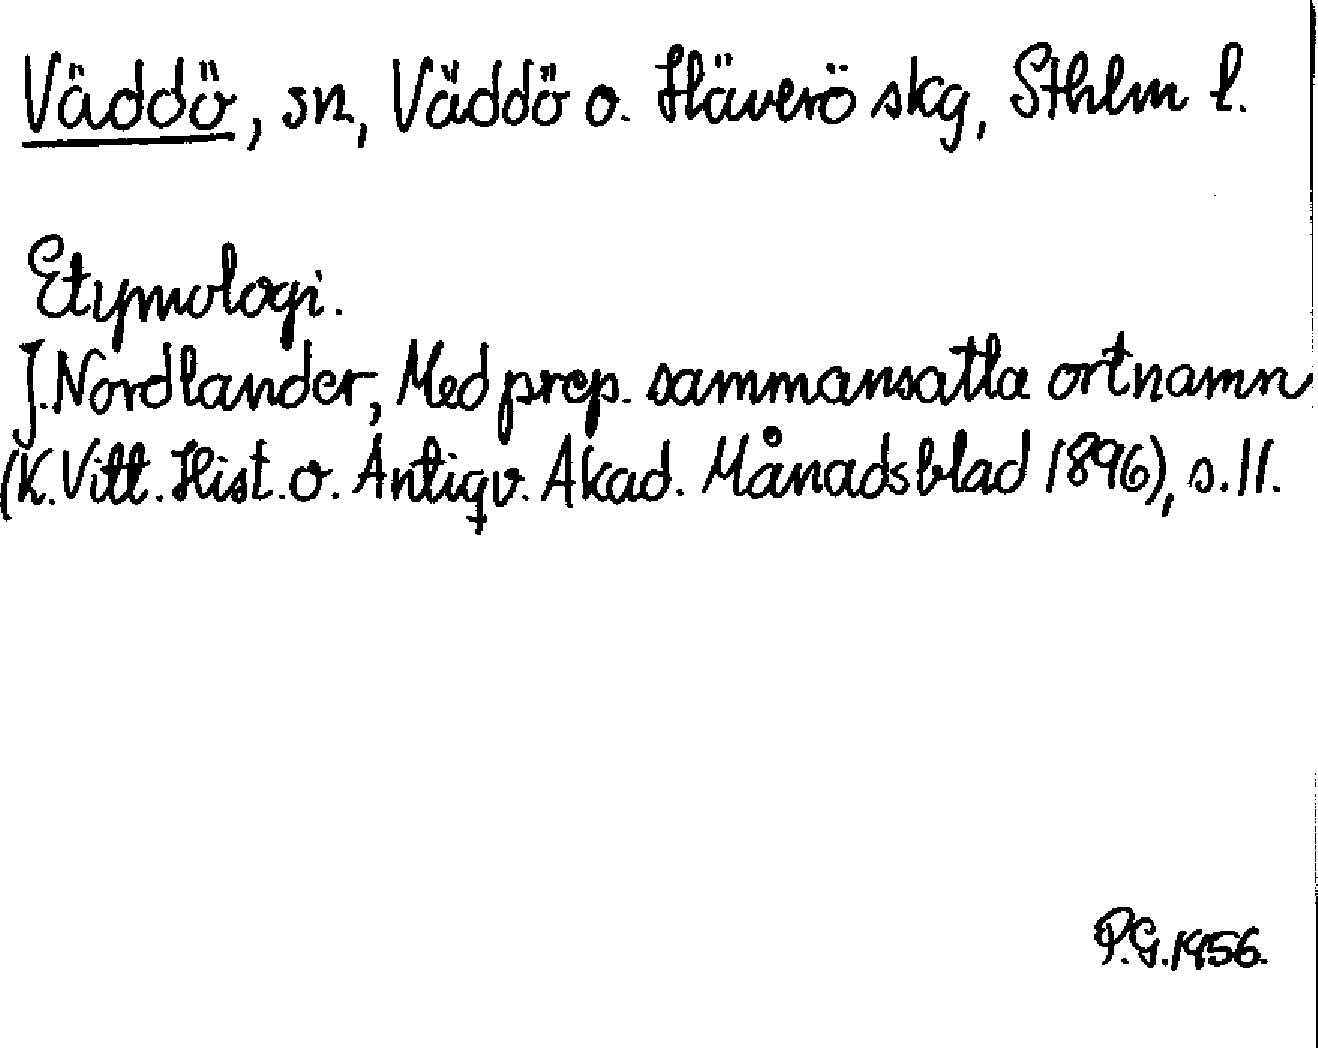 Väddö, sn, Väddö o. Häverö skg, Sthlm l.
Etymologi.
J. Nordlander, Med prep. sammansatta ortnamn
(K. Vitt. Hist. o. Antiqv. Akad. Månadsblad 1896), s. 11.
P.G. 1956.